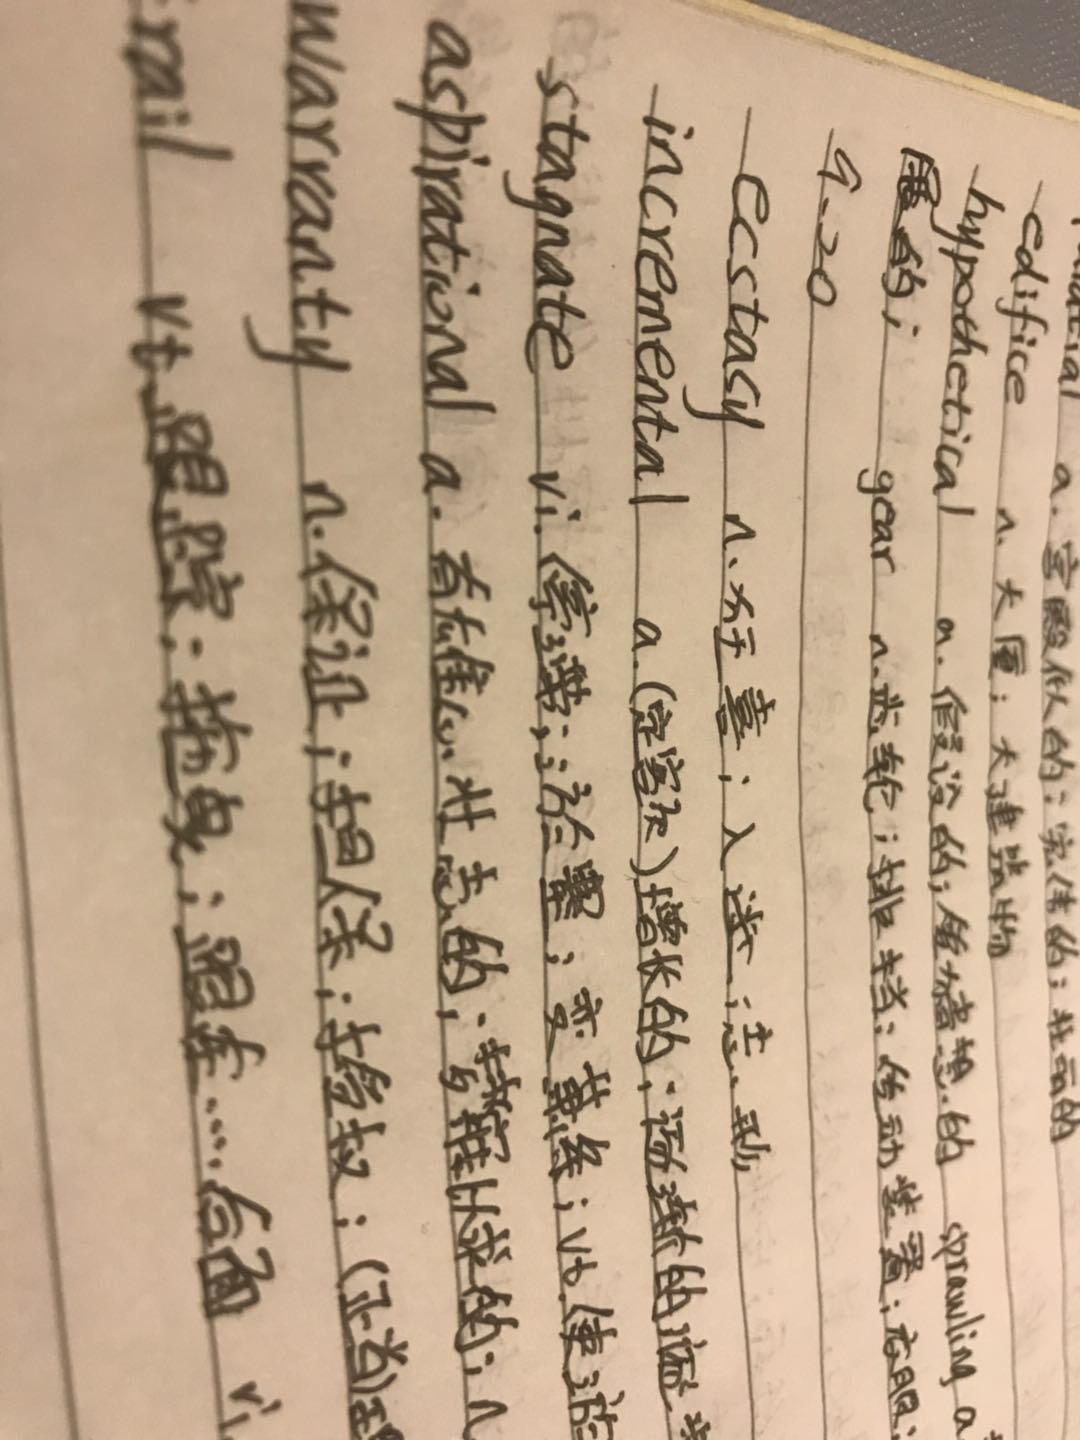 a. 宫殿似的；宏伟的；壮丽的
edifice n. 大厦；大建筑物
hypothetical a. 假设的，假想的 sprawling a
展的； gear n. 齿轮；排档；传动装置；衣服；
9-20
ecstasy n. 狂喜；入迷；忘形
incremental a. (定额)增长的；逐渐的
stagnate vi. 停滞；淤塞；变萧条；vt. 使
aspirational a. 有雄心壮志的； n
warranty n. 保证；担保；授权；(正当)理
trail vt. 跟踪；拖曳；跟在…后面 vi.